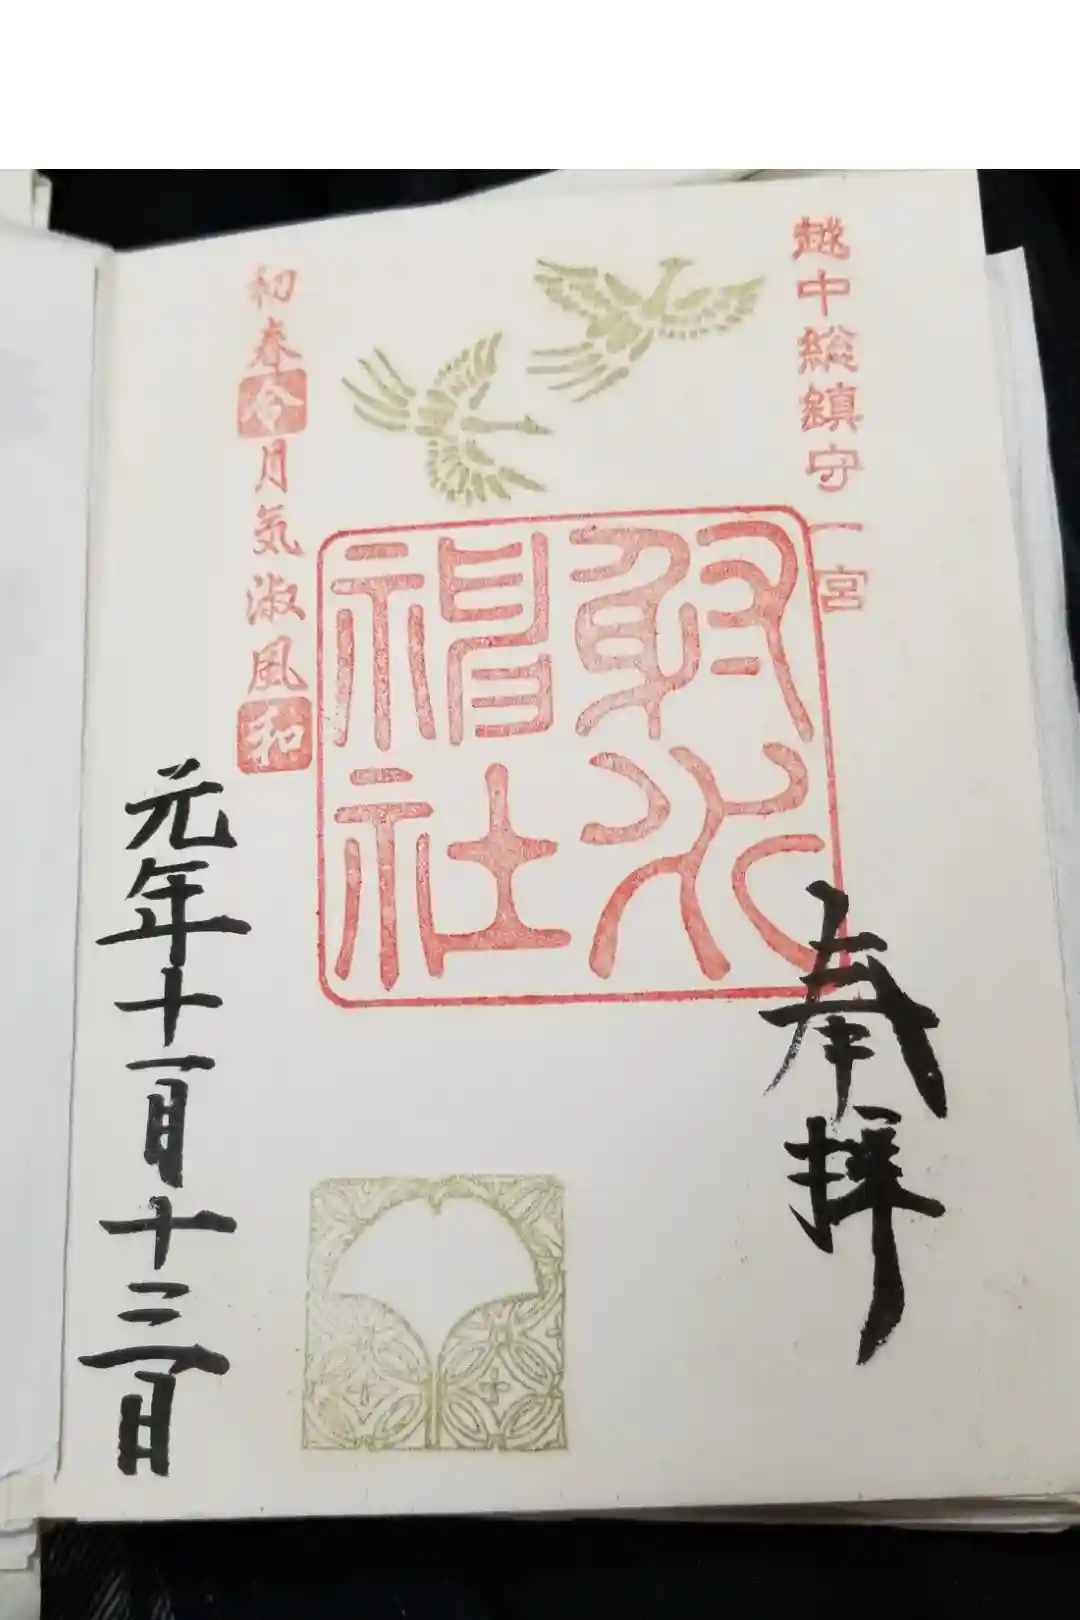 越中総鎮守一宮
奉拝
射水
神社
初春令月気淑風和
元年十一月十三日